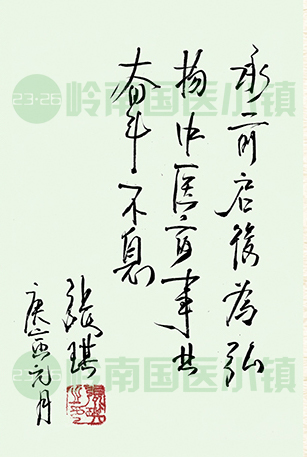 承前启後為弘
扬中医药事业
奋斗不息
張琪
庚寅元月
23·26 岭南国医小镇
23·26 岭南国医小镇